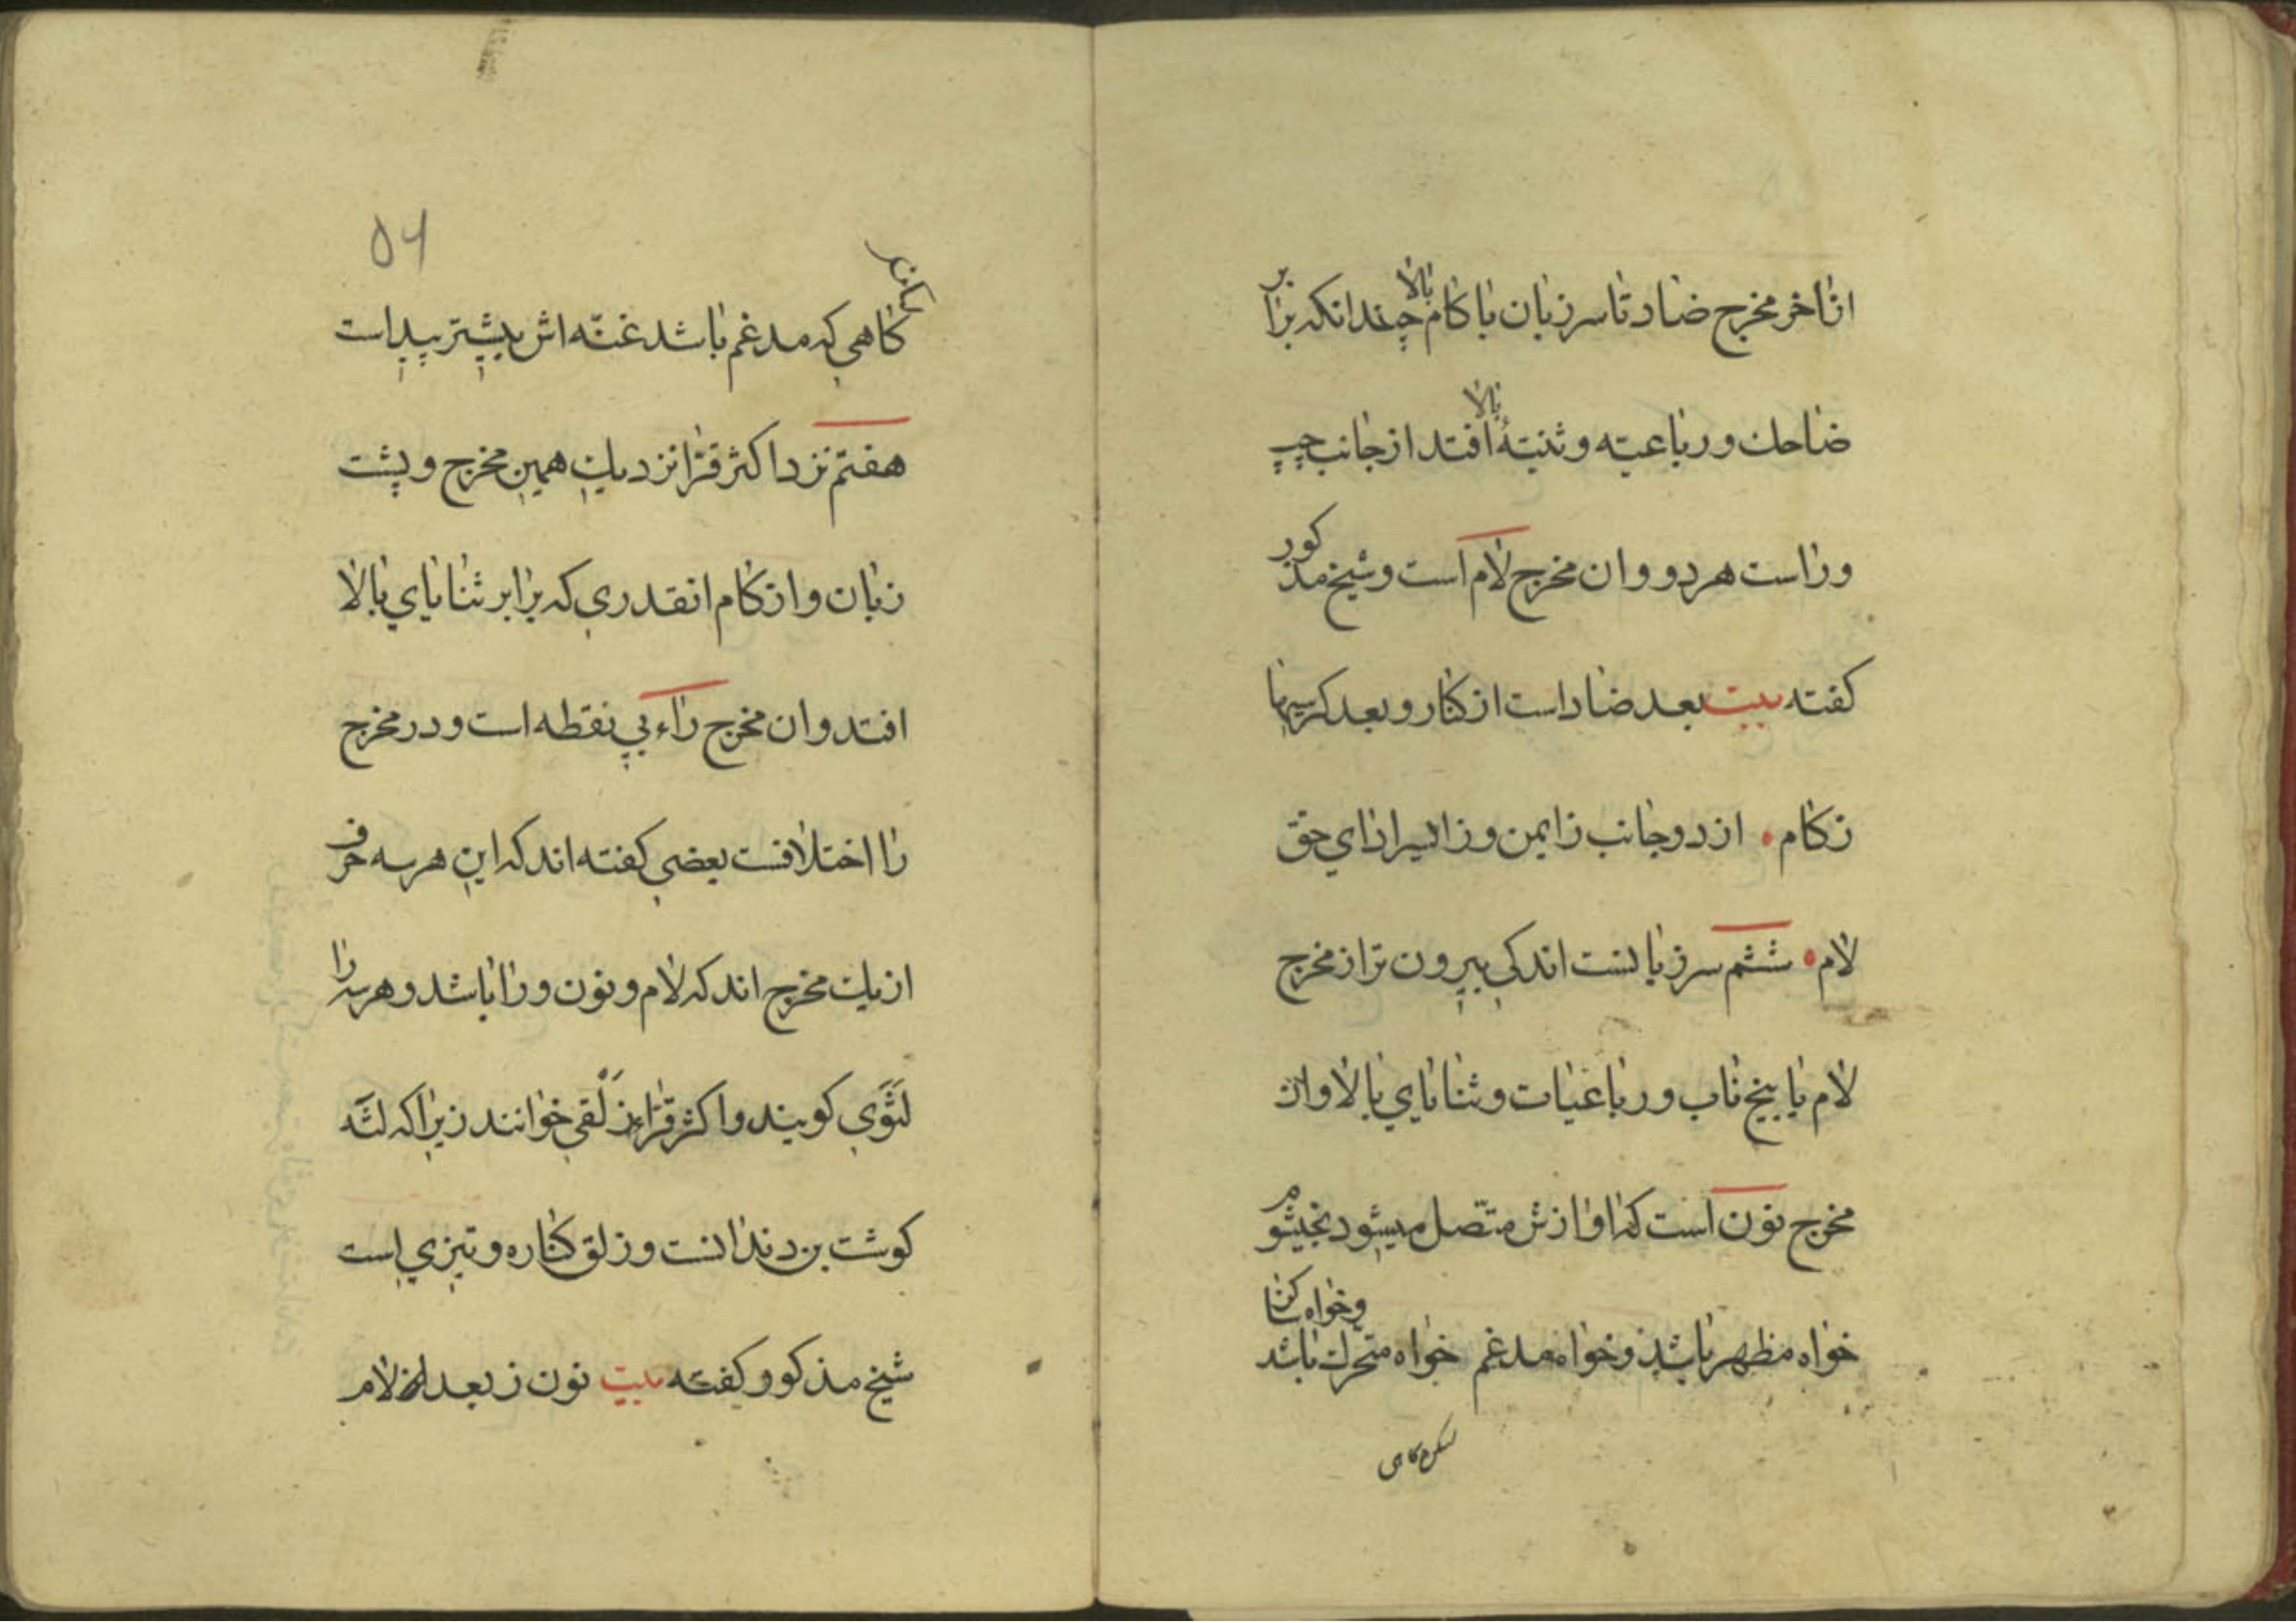 از آخر مخرج ضاد تا سر زبان با کام بالا چندانکه برابر
ضاحك و رباعیّه و ثنیّهٔ بالا افتد از جانب چپ
و راست هر دو و ان مخرج لام است و شیخ مذکور
کفته بیت بعد ضاد است از کنار و بعد کرسیها
ز کام • از دو جانب ز ایمن و ز ایسر ادای حق
لام • ششم سر زبانست اندکی بیرون تر از مخرج
لام با بیخ ناب و رباعیات و ثنایای بالا و ان
مخرج نون است که اوازش متّصل میشود بخیشوم
خواه مظهر باشد و خواه مدغم خواه متحرك باشد و خواه ساکن
لیکن کاهی
۵۶
کاهی که مدغم باشد غنّه اش بیشتر پیداست
هفتم نزد اکثر قرّا نزدیك همین مخرج و پشت
زبان و از کام انقدری که برابر ثنایای بالا
افتد و ان مخرج راء بی نقطه است و در مخرج
را اختلافست بعضی کفته اند که این هر سه حرف
از یك مخرج اند که لام و نون و را باشد و هر سه را
لَثَوی کویند و اکثر قرّاء زَلْقی خوانند زیرا که لثَه
کوشت بن دندانست و زلق کناره و تیزی است
شیخ مذکور کفته بیت نون ز بعد لام